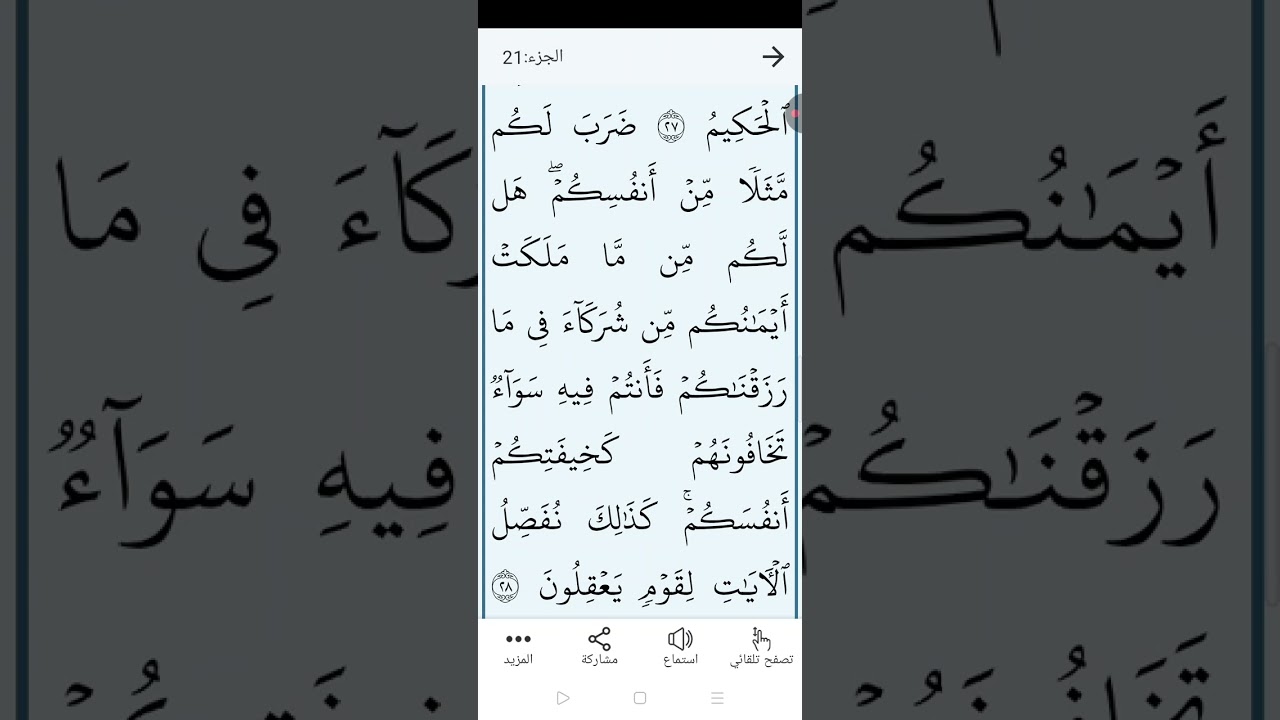 الجزء:21
ٱلْحَكِيمُ ٢٧ ضَرَبَ لَكُم
مَّثَلًا مِّنْ أَنفُسِكُمْۖ هَل
لَّكُم مِّن مَّا مَلَكَتْ
أَيْمَٰنُكُم مِّن شُرَكَآءَ فِي مَا
رَزَقْنَٰكُمْ فَأَنتُمْ فِيهِ سَوَآءٌ
تَخَافُونَهُمْ كَخِيفَتِكُمْ
أَنفُسَكُمْۚ كَذَٰلِكَ نُفَصِّلُ
ٱلْأٓيَٰتِ لِقَوْمٍ يَعْقِلُونَ ٢٨
تصفح تلقائي استماع مشاركة المزيد
أَيْمَٰنُكُم
كَآءَ فِي مَا
رَزَقْنَٰكُمْ
فِيهِ سَوَآءٌ